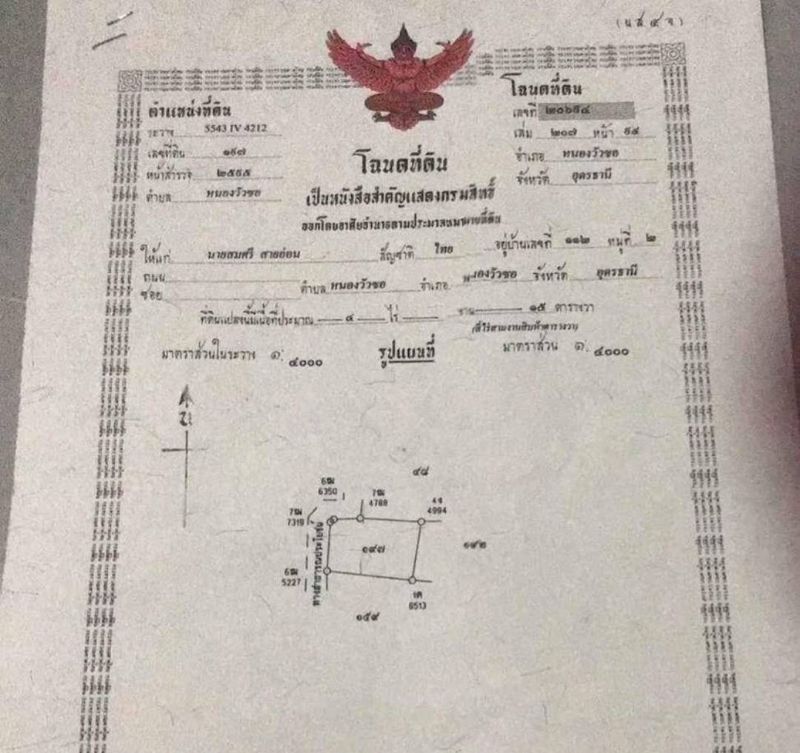 (น ส ๔ จ)
ตำแหน่งที่ดิน
ระวาง 5543 IV 4212
เลขที่ดิน ๑๙๗
หน้าสำรวจ ๒๕๕๕
ตำบล หนองวัวซอ
โฉนดที่ดิน
เลขที่ ๒๐๖๕๔
เล่ม ๒๐๗ หน้า ๕๔
อำเภอ หนองวัวซอ
จังหวัด อุดรธานี
โฉนดที่ดิน
เป็นหนังสือสำคัญแสดงกรมสิทธิ์
ออกโดยอาศัยอำนาจตามประมวลกฎหมายที่ดิน
ให้แก่ นายสมศรี สายอ่อน สัญชาติ ไทย อยู่บ้านเลขที่ ๑๑๒ หมู่ที่ ๒
ถนน
ซอย ตำบล หนองวัวซอ อำเภอ หนองวัวซอ จังหวัด อุดรธานี
ที่ดินแปลงนี้มีเนื้อที่ประมาณ ๔ ไร่ งาน ๑๕ ตารางวา
มาตราส่วนในระวาง ๑: ๔๐๐๐ รูปแผนที่ มาตราส่วน ๑: ๔๐๐๐
น
๔๘
6ฒ
6350
7ฒ
4788
4จ
4994
7ฒ
7319
๑๙๗
๑๙๒
ทางสาธารณประโยชน์
6ฒ
5227
8513
๑๕๙